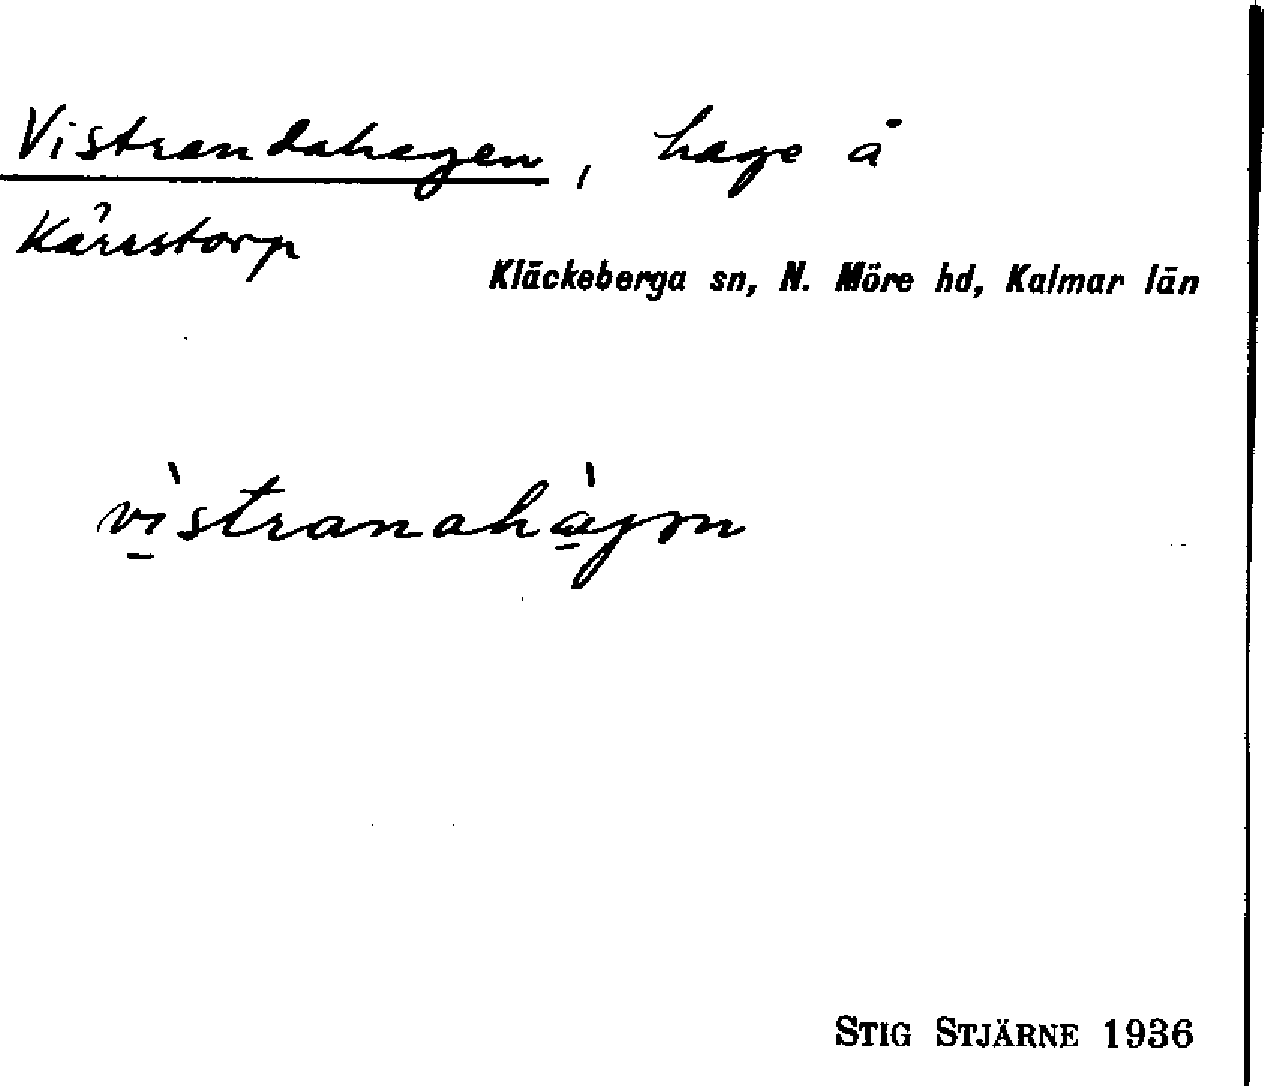 Vistrandahagen, hage å
Kärrstorp
Kläckeberga sn, N. Möre hd, Kalmar län
vìstranahàgɒn
STIG STJÄRNE 1936